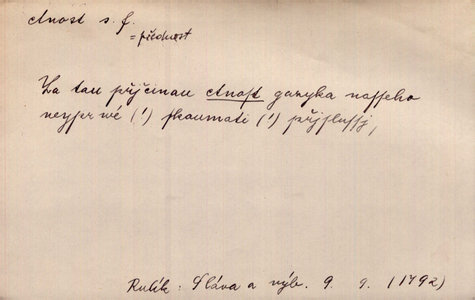 ctnost s. f.
= přednost
Za tau přjčinau ctnost gazyka nasseho
neyprwé (!) skaumati (!) přjslussj,
Rulík: Sláva a výb. 9. 9. (1792)